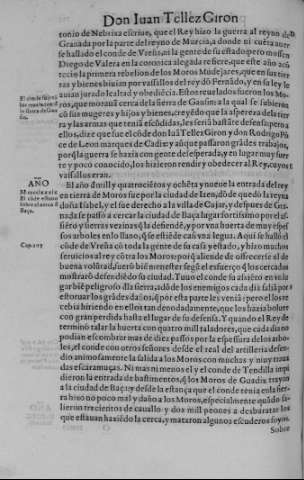 Don Iuan Tellez Giron
tonio de Nebrixa escriue, que el Rey hizo la guerra al reyno de
Granada por la parte del reyno de Murcia, a donde ni cõsta auer
se hallado el conde de Vreña, ni la gente de su estado: pero mossen
Diego de Valera en la coronica alegada refiere, que este año acõ
tecio la primera rebelion de los Moros Mudejares, que en sus tier
ras y bienes biuian por vassallos del rey dõ Fernãdo, y en su ley le
auian jurado lealtad y obediẽcia. Estos reuelados fueron los Mo
ros, que morauã cerca dela sierra de Gausin: a la qual se subieron
cõ sus mugeres y hijos y bienes, creyẽdo que la aspereza dela tier
ra y las armas que tenia escõdidas, les seria bastãte defensa: pero a
ellos, dize que fue el cõde don Iuã Tellez Giron y don Rodrigo Põ
ce de Leon marques de Cadiz: y aũque passaron grãdes trabajos,
por q̃ la guerra se hazia con gente desesperada, en lugar muy fuer
te y poco conocido, los hizieron rendir y obedecer al Rey, cuyos
vassallos eran.
El año de mill y quatrociẽtos y ochẽta y nueue la entrada del rey
en tierra de Moros fue por la ciudad de Iaen, dõ de quedò la reyna
doña Isabel, y el fue derecho a la villa de Cujar, y despues de ga-
nada se passò a cercar la ciudad de Baça lugar fortissimo por el as-
siẽto y tierras vezinas q̃ la defendẽ, y por vna huerta de muy espes
sos arboles en lo llano, q̃ se estiẽde casi vna legua. Aqui se hallò el
cõde de Vreña cõ toda la gente de su casa y estado, y hizo muchos
seruicios al rey cõtra los Moros: por q̃ aliende de ofrecerse al de
buena volũtad, fue tã biẽ menester seg̃ el esfuerço q̃ los cercados
mostrarõ defendiẽdo su ciudad. Tuuo el conde su assiẽto en vn la
gar biẽ peligroso dela sierra, adõ de los enemigos cada dia salian por
estoruar los grãdes daños, q̃ por esta parte les veniã: pero el los re
cebia hiriendo en ellos tan denodadamente, que los hazia boluer
con gran perdida hasta el lugar de su defensa. Y quando el Rey de
terminò talar la huerta con quatro mill taladores, que cada dia no
podian escombrar mas de diez passos por la espessura delos arbo-
les, el conde con otros señores desde el real del artilleria defen-
dio animosamente la salida a los Moros con muchas y muy traua
das escaramuças. Ni mas ni menos el y el conde de Tendilla impi
dieron la entrada de bastimentos, q̃ los Moros de Guadix trayan
a la ciudad de Baça: y desde la estança que el conde tenia en la sier
ra hizo no poco mal y daño a los Moros, especialmente quãdo sa-
lieron trecientos de cauallo y dos mill peones a desbaratar los
que estauan haziẽdo la cerca, y mataron algunos escuderos suyos.
Sobre
AÑO
Baça.